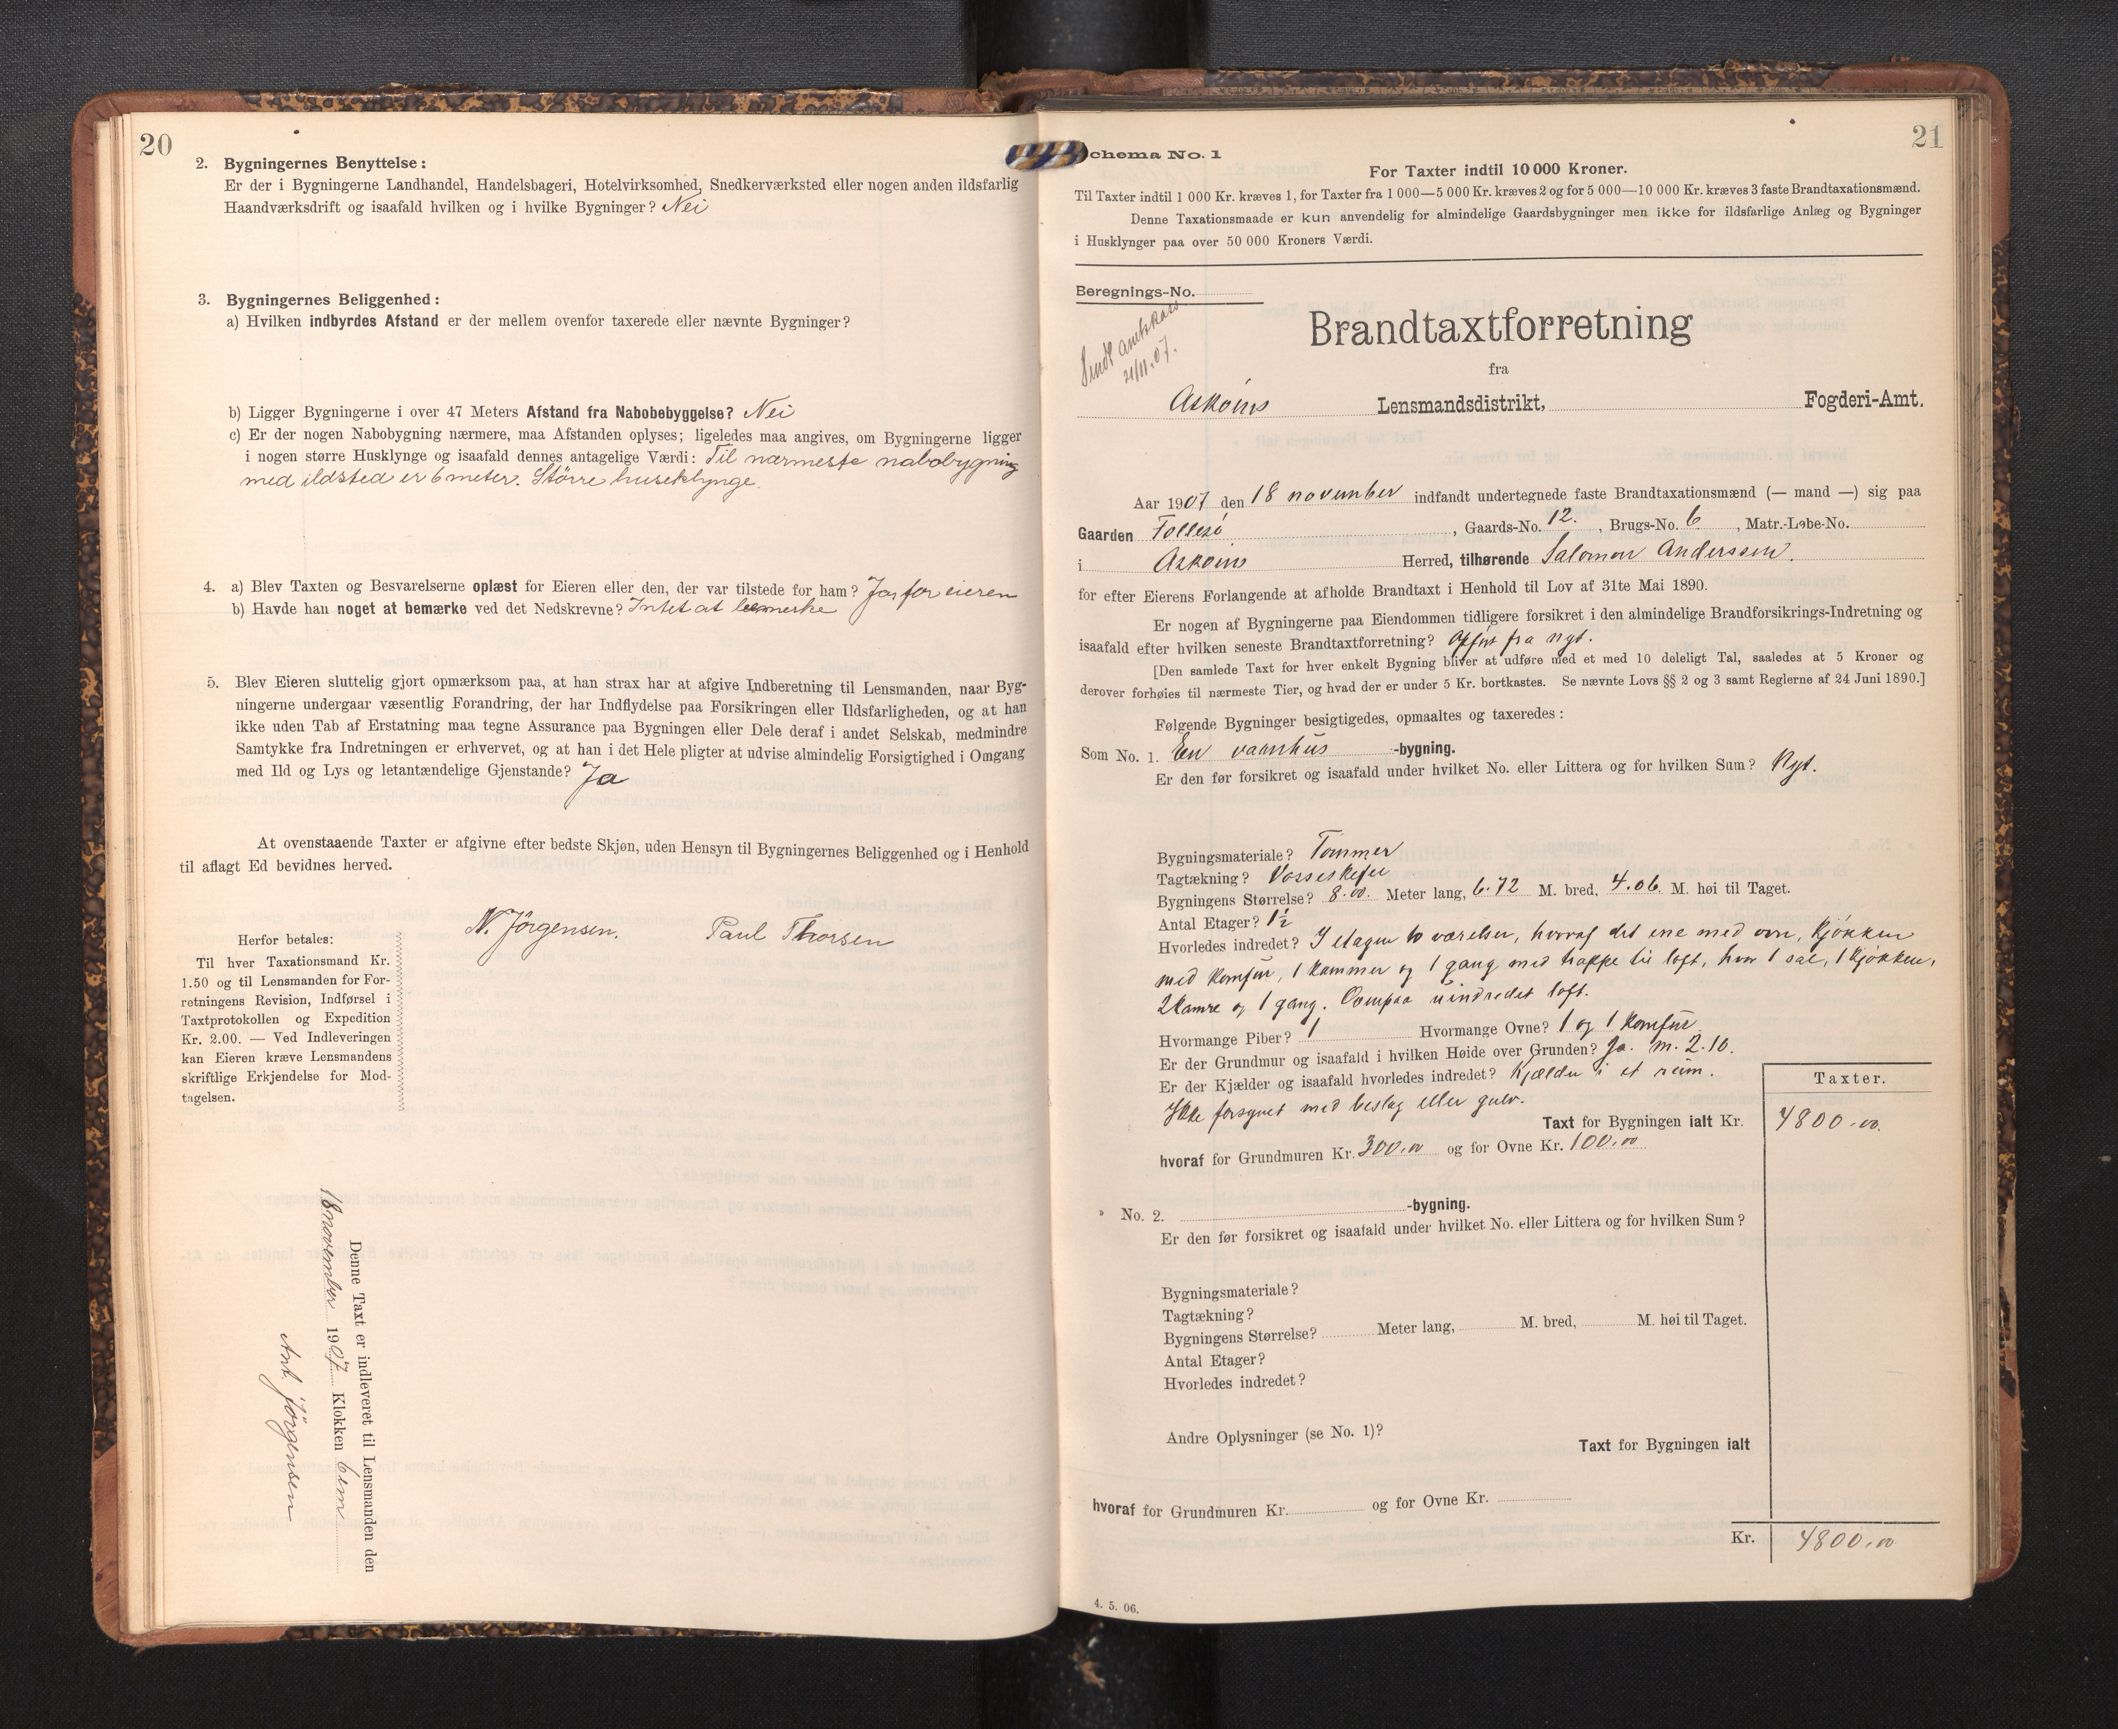 20
2. Bygningernes Benyttelse:
Er der i Bygningerne Landhandel, Handelsbageri, Hotelvirksomhed, Snedkerværksted eller nogen anden ildsfarlig
Haandværksdrift og isaafald hvilken og i hvilke Bygninger? Nei
3. Bygningernes Beliggenhed:
a) Hvilken indbyrdes Afstand er der mellem ovenfor taxerede eller nævnte Bygninger?
b) Ligger Bygningerne i over 47 Meters Afstand fra Nabobebyggelse? Nei
c) Er der nogen Nabobygning nærmere, maa Afstanden oplyses; ligeledes maa angives, om Bygningerne ligger
i nogen større Husklynge og isaafald dennes antagelige Værdi: Til nærmeste nabobygning
med ildsted er 6 meter. Större huseklynge.
4. a) Blev Taxten og Besvarelserne oplæst for Eieren eller den, der var tilstede for ham? Ja, for eieren
b) Havde han noget at bemærke ved det Nedskrevne? Intet at bemerke
5. Blev Eieren sluttelig gjort opmærksom paa, at han strax har at afgive Indberetning til Lensmanden, naar Byg-
ningerne undergaar væsentlig Forandring, der har Indflydelse paa Forsikringen eller Ildsfarligheden, og at han
ikke uden Tab af Erstatning maa tegne Assurance paa Bygningen eller Dele deraf i andet Selskab, medmindre
Samtykke fra Indretningen er erhvervet, og at han i det Hele pligter at udvise almindelig Forsigtighed i Omgang
med Ild og Lys og letantændelige Gjenstande? Ja
At ovenstaaende Taxter er afgivne efter bedste Skjøn, uden Hensyn til Bygningernes Beliggenhed og i Henhold
til aflagt Ed bevidnes herved.
N. Jörgensen. Paul Thorsen
Herfor betales:
Til hver Taxationsmand Kr.
1.50 og til Lensmanden for For-
retningens Revision, Indførsel i
Taxtprotokollen og Expedition
Kr. 2.00. — Ved Indleveringen
kan Eieren kræve Lensmandens
skriftlige Erkjendelse for Mod-
tagelsen.
Denne Taxt er indleveret til Lensmanden den
18 november 1907 Klokken 6 em
Ant. Jörgensen
21
chema No. 1
For Taxter indtil 10 000 Kroner.
Til Taxter indtil 1 000 Kr. kræves 1, for Taxter fra 1 000—5 000 Kr. kræves 2 og for 5 000—10 000 Kr. kræves 3 faste Brandtaxationsmænd.
Denne Taxationsmaade er kun anvendelig for almindelige Gaardsbygninger men ikke for ildsfarlige Anlæg og Bygninger
i Husklynger paa over 50 000 Kroners Værdi.
Beregnings-No.
Sendt amtskass
21/11.07.
Brandtaxtforretning
fra
Askøins Lensmandsdistrikt, Fogderi-Amt.
Aar 1907 den 18 november indfandt undertegnede faste Brandtaxationsmænd (— mand —) sig paa
Gaarden Follesö, Gaards-No. 12., Brugs-No. 6, Matr.-Løbe-No.
i Askøins Herred, tilhørende Salomon Anderssen.
for efter Eierens Forlangende at afholde Brandtaxt i Henhold til Lov af 31te Mai 1890.
Er nogen af Bygningerne paa Eiendommen tidligere forsikret i den almindelige Brandforsikrings-Indretning og
isaafald efter hvilken seneste Brandtaxtforretning? Opført fra nyt.
[Den samlede Taxt for hver enkelt Bygning bliver at udføre med et med 10 deleligt Tal, saaledes at 5 Kroner og
derover forhøies til nærmeste Tier, og hvad der er under 5 Kr. bortkastes. Se nævnte Lovs §§ 2 og 3 samt Reglerne af 24 Juni 1890.]
Følgende Bygninger besigtigedes, opmaaltes og taxeredes:
Som No. 1. En vaanhus -bygning.
Er den før forsikret og isaafald under hvilket No. eller Littera og for hvilken Sum? Nyt.
Bygningsmateriale? Tömmer
Tagtækning? Vosseskifer
Bygningens Størrelse? 8.00 Meter lang, 6.72 M. bred, 4.06 M. høi til Taget.
Antal Etager? 1½
Hvorledes indredet? I etagen to værelser, hvoraf det ene med ovn, kjøkken
med komfur, 1 kammer og 1 gang med trappe til loft, hvor 1 sal, 1 kjøkken,
2 kamre og 1 gang. Ovenpaa uindredet loft.
Hvormange Piber? 1 Hvormange Ovne? 1 og 1 komfur
Er der Grundmur og isaafald i hvilken Høide over Grunden? Ja. m. 2.10.
Er der Kjælder og isaafald hvorledes indredet? Kjælder i et rum.
Ikke forsynet med beslag eller gulv.
Taxter.
Taxt for Bygningen ialt Kr. 4800.00.
hvoraf for Grundmuren Kr. 300.00 og for Ovne Kr. 100.00
No. 2. -bygning.
Er den før forsikret og isaafald under hvilket No. eller Littera og for hvilken Sum?
Bygningsmateriale?
Tagtækning?
Bygningens Størrelse? Meter lang, M. bred, M. høi til Taget.
Antal Etager?
Hvorledes indredet?
Andre Oplysninger (se No. 1)?
Taxt for Bygningen ialt
hvoraf for Grundmuren Kr. og for Ovne Kr.
Kr. 4800.00
4. 5. 06.